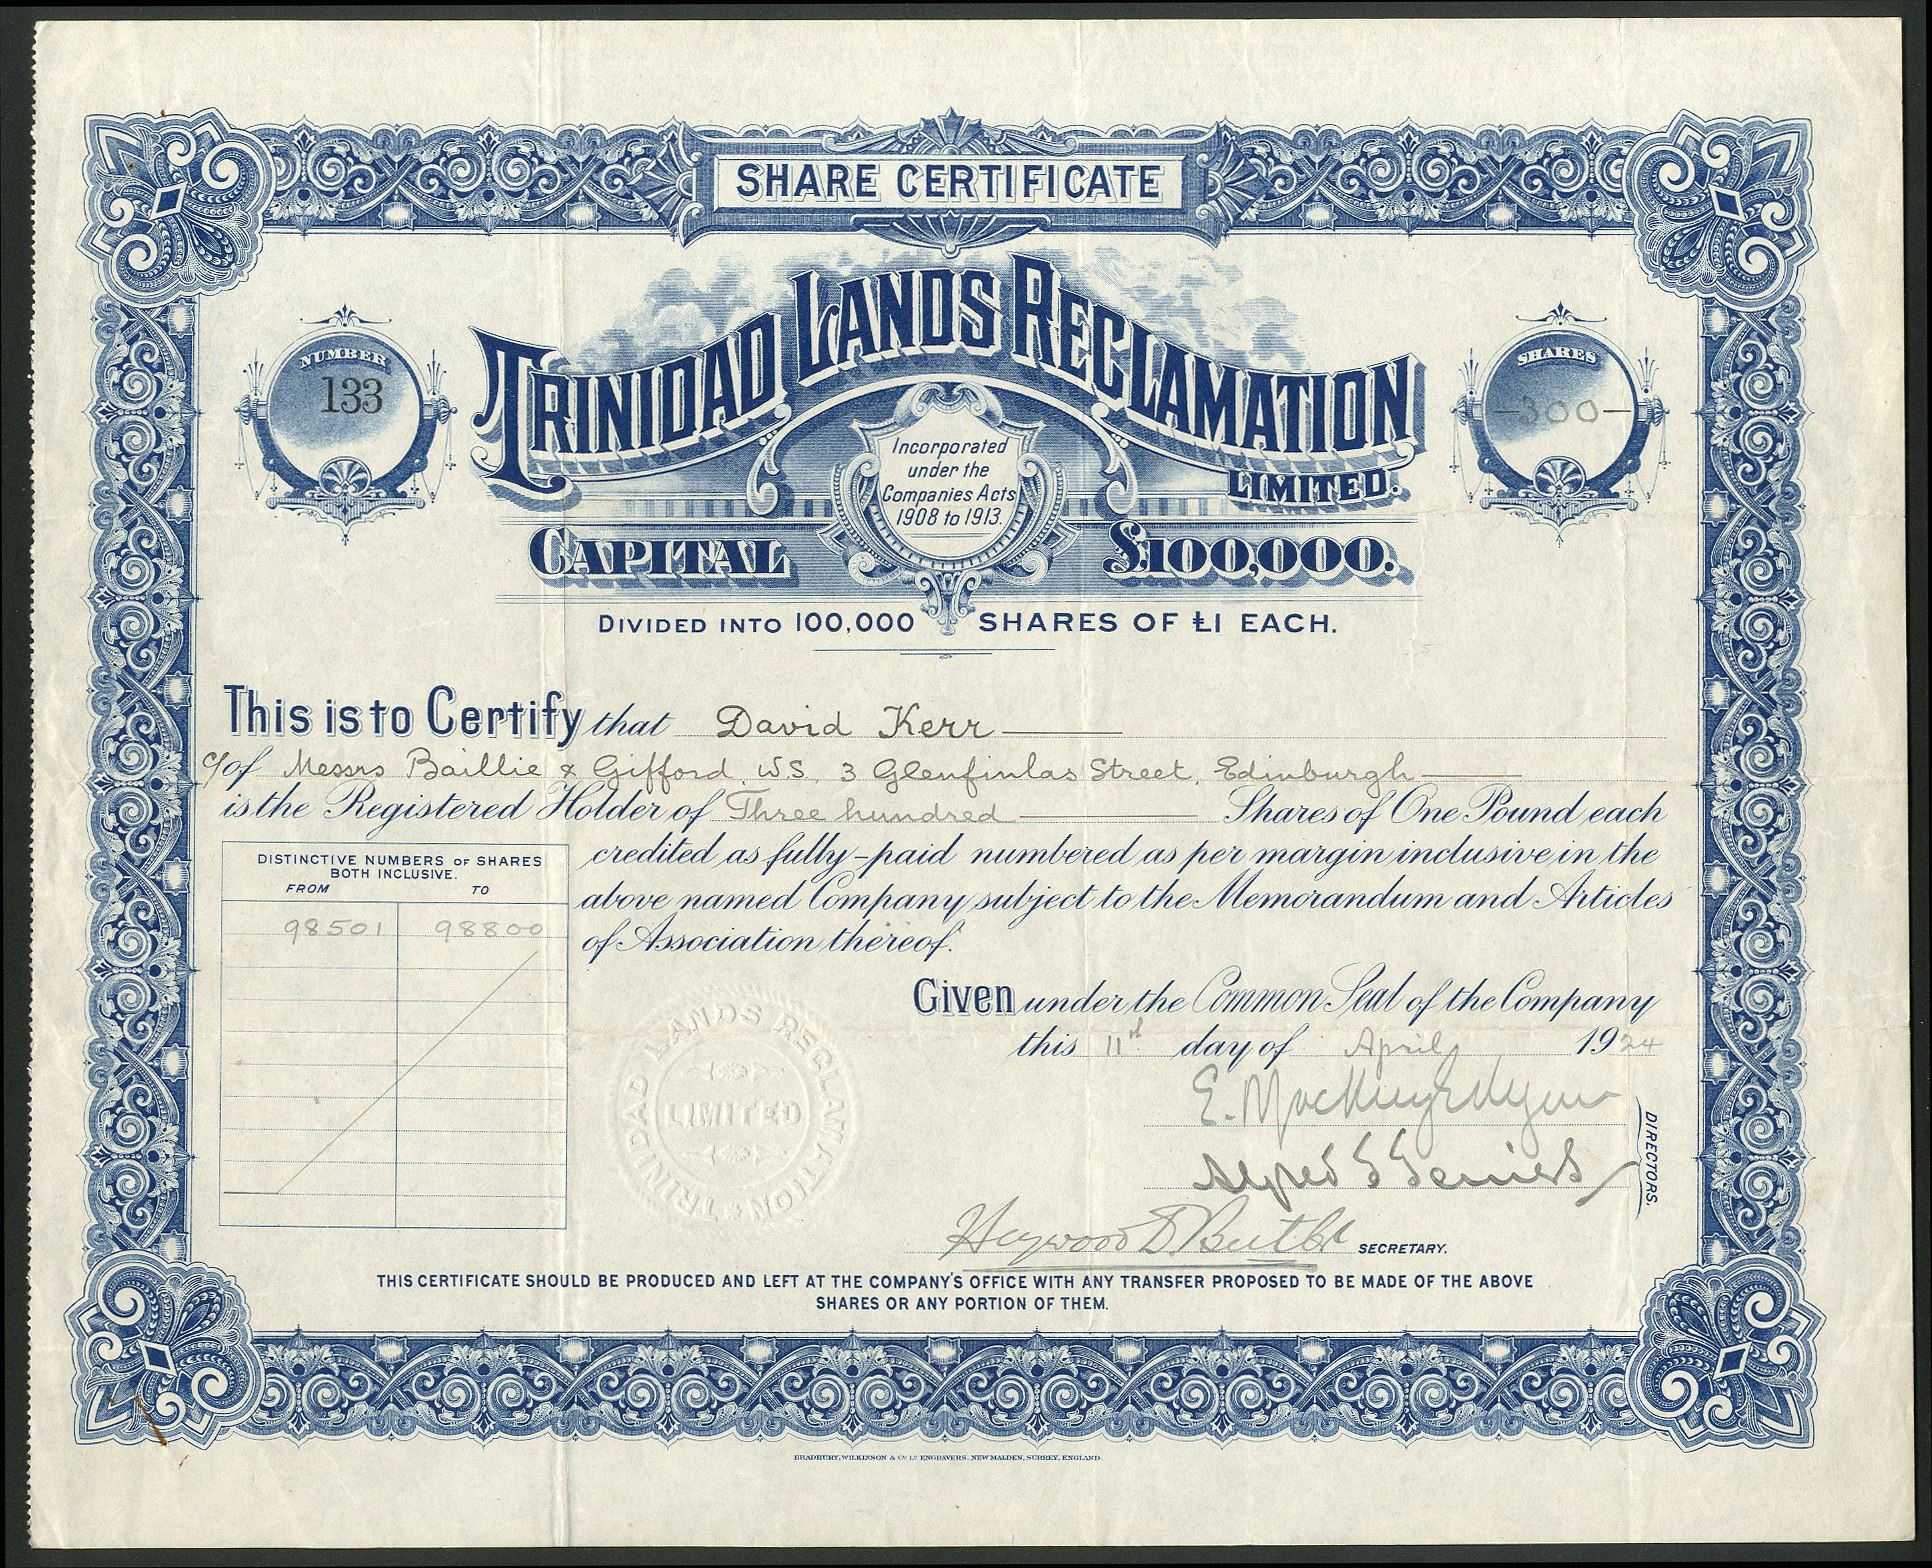 SHARE CERTIFICATE
NUMBER
133
TRINIDAD LANDS RECLAMATION
LIMITED.
SHARES
-300-
Incorporated
under the
Companies Acts
1908 to 1913.
CAPITAL £100,000.
DIVIDED INTO 100,000 SHARES OF £1 EACH.
This is to Certify that David Kerr
c/o of Messrs Baillie & Gifford, W.S. 3 Glenfinlas Street, Edinburgh
is the Registered Holder of Three hundred Shares of One Pound each
credited as fully-paid numbered as per margin inclusive in the
above named Company subject to the Memorandum and Articles
of Association thereof.
DISTINCTIVE NUMBERS OF SHARES
BOTH INCLUSIVE.
FROM TO
98501 98800
Given under the Common Seal of the Company
this 11th day of April 1924
TRINIDAD LANDS RECLAMATION
LIMITED
E.
Alfred
DIRECTORS.
Heywood D Butler
SECRETARY.
THIS CERTIFICATE SHOULD BE PRODUCED AND LEFT AT THE COMPANY'S OFFICE WITH ANY TRANSFER PROPOSED TO BE MADE OF THE ABOVE
SHARES OR ANY PORTION OF THEM.
BRADBURY, WILKINSON & Co Ld ENGRAVERS, NEW MALDEN, SURREY, ENGLAND.